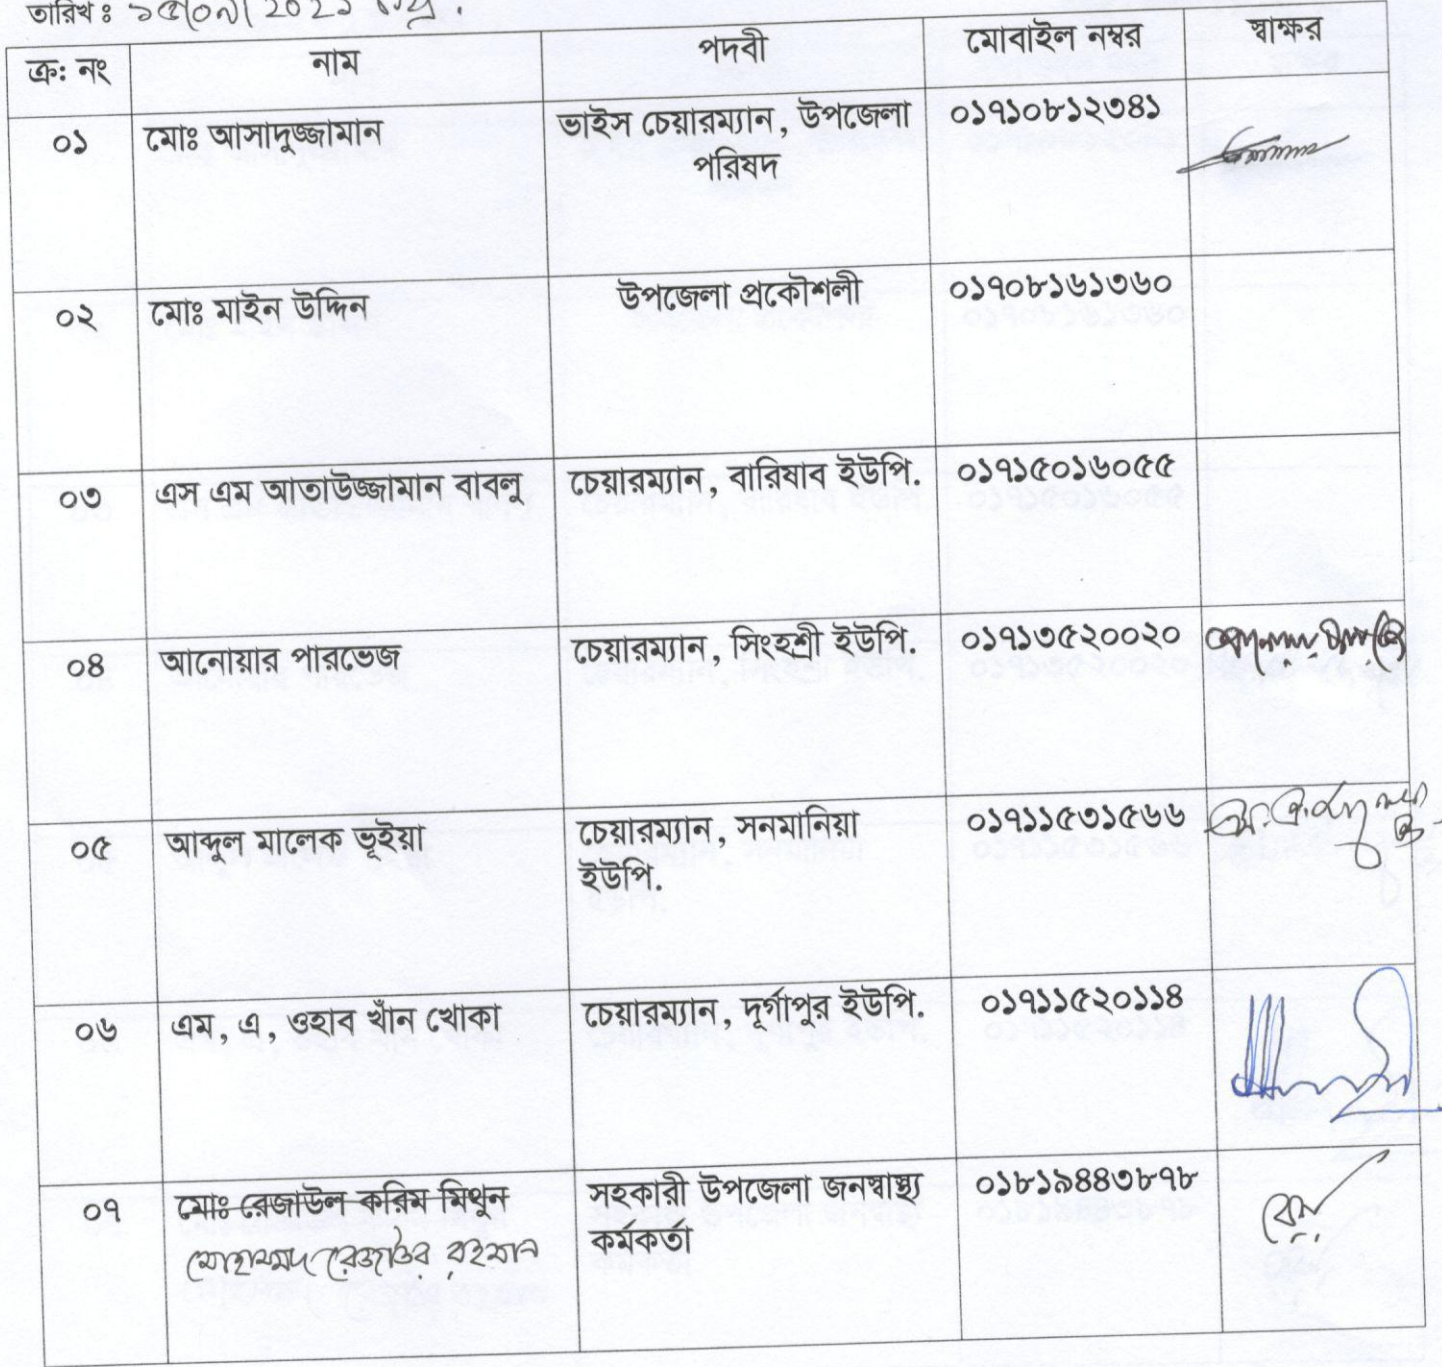 তারিখঃ ১৫/০৯/ 2021
ক্র: নং | নাম | পদবী | মোবাইল নম্বর | স্বাক্ষর
০১ | মোঃ আসাদুজ্জামান | ভাইস চেয়ারম্যান, উপজেলা | ০১৭১০৮১২৩৪১
পরিষদ
০২ | মোঃ মাইন উদ্দিন | উপজেলা প্রকৌশলী | ০১৭০৮১৬১৩৬০
০৩ | এস এম আতাউজ্জামান বাবলু | চেয়ারম্যান, বারিষাব ইউপি. | ০১৭১৫০১৬০৫৫
০৪ | আনোয়ার পারভেজ | চেয়ারম্যান, সিংহশ্রী ইউপি. | ০১৭১৩৫২০০২০
০৫ | আব্দুল মালেক ভূইয়া | চেয়ারম্যান, সনমানিয়া | ০১৭১১৫৩১৫৬৬
ইউপি.
০৬ | এম, এ, ওহাব খাঁন খোকা | চেয়ারম্যান, দূর্গাপুর ইউপি. | ০১৭১১৫২০১১৪
০৭ | মোঃ রেজাউল করিম মিথুন | সহকারী উপজেলা জনস্বাস্থ্য | ০১৮১৯৪৪৩৮৭৮
মোহাম্মদ রেজাউর রহমান | কর্মকর্তা